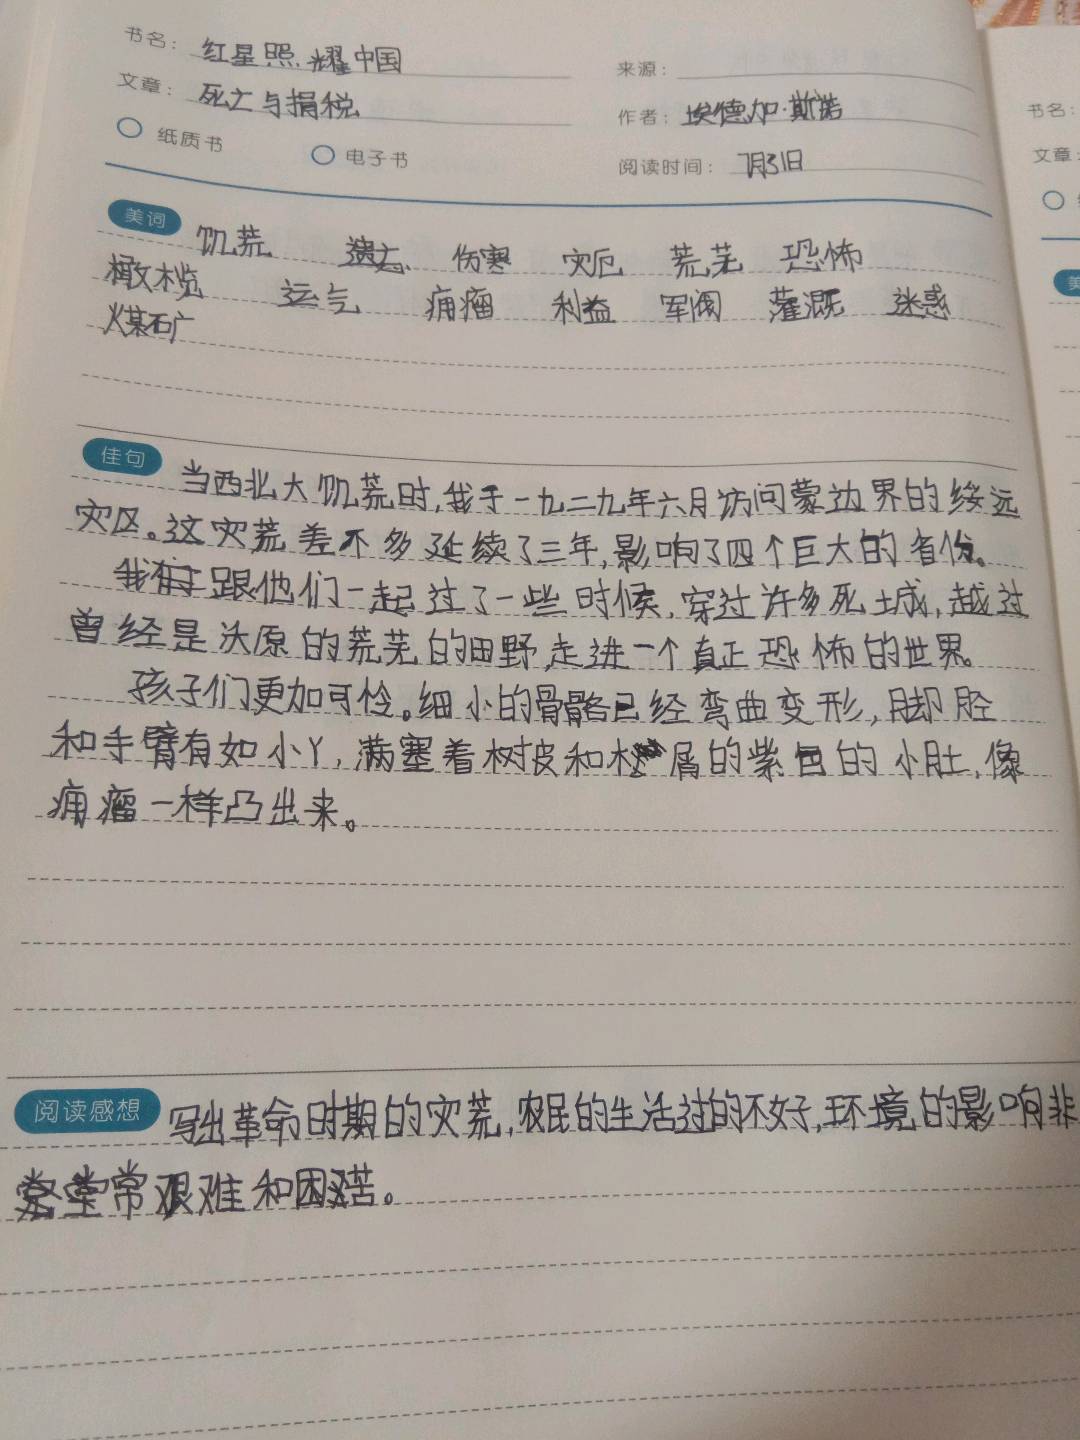 书名： 红星照耀中国
来源：
文章： 死亡与捐税
作者： 埃德加·斯诺
纸质书 电子书
阅读时间： 7月31日
美词 饥荒 遗忘 伤寒 灾厄 荒芜 恐怖
橄榄 运气 痈瘤 利益 军阀 灌溉 迷惑
煤矿
佳句 当西北大饥荒时,我于一九二九年六月访问蒙边界的绥远
灾区。这灾荒差不多延续了三年,影响了四个巨大的省份。
我 跟他们一起过了一些时候,穿过许多死城,越过
曾经是沃原的荒芜的田野,走进一个真正恐怖的世界。
孩子们更加可怜。细小的骨骼已经弯曲变形,脚胫
和手臂有如小丫,满塞着树皮和 屑的紫色的小肚,像
痈瘤一样凸出来。
阅读感想 写出革命时期的灾荒,农民的生活过的不好,环境的影响非
常艰难和困苦。
书名：
文章：
美